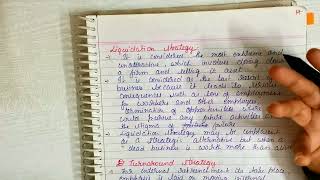 Liquidation Strategy
→ It is considered the most extreme and
unattractive, which involves closing down
a firm and selling it asset.
→ It is considered as the last resort
business because it leads to serious
consequences such as loss of employment
for workers and other employees,
termination of opportunities where
could pursue any future activities and
the stigma of failure
→ Liquidation strategy may be
as a strategic alternative but when a
dead business is worth more than alive
Turnaround Strategy
→ For internal retrenchment to take place,
emphasis is laid on internal